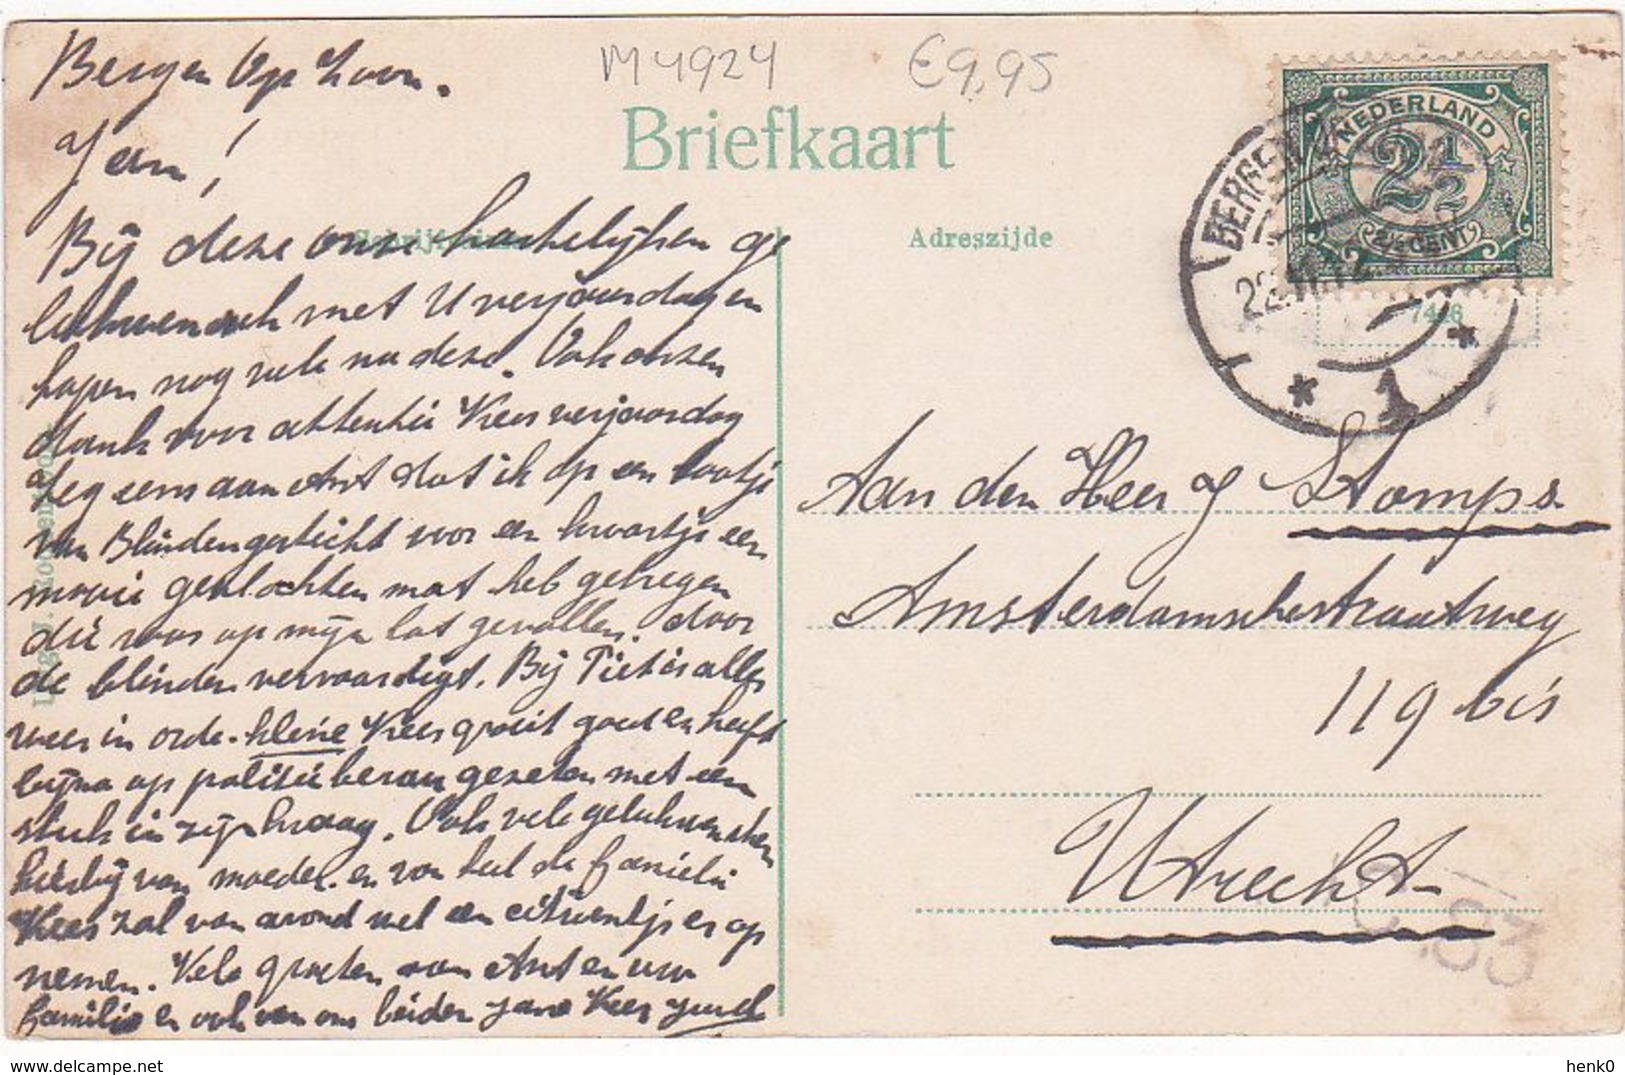 Bergen Op Zoom.
M4924
€9,95
Briefkaart
Jan!
Adreszijde
Bij deze onze hartelijken ge
lukwensch met U verjaardag en
hopen nog vele na deze. Ook onzen
dank voor attentie Kees verjaardag
zeg eens aan Ant dat ik op een lootje
van Blindengesticht voor een kwartje een
mooie gevlochten mat heb gekregen
die was op mijn lot gevallen. door
de blinden vervaardigt. Bij Piet is alles
weer in orde. kleine Kees groeit goed en heeft
bijna op politie bureau gezeten met een
stuk in zijn kraag. Ook vele gelukwenschen
hierbij van moeder en van heel de familie
Kees zal van avond wel een citroentje er op
nemen. Vele groeten aan Ant en uw
familie en ook van ons beiden Jane Kees
NEDERLAND
2½
2½ CENT
BERGEN
22
1
7426
Aan den Heer J Stomps.
Amsterdamschestraatweg
119 bis
Utrecht
83
henk0
https://www.delcampe.net